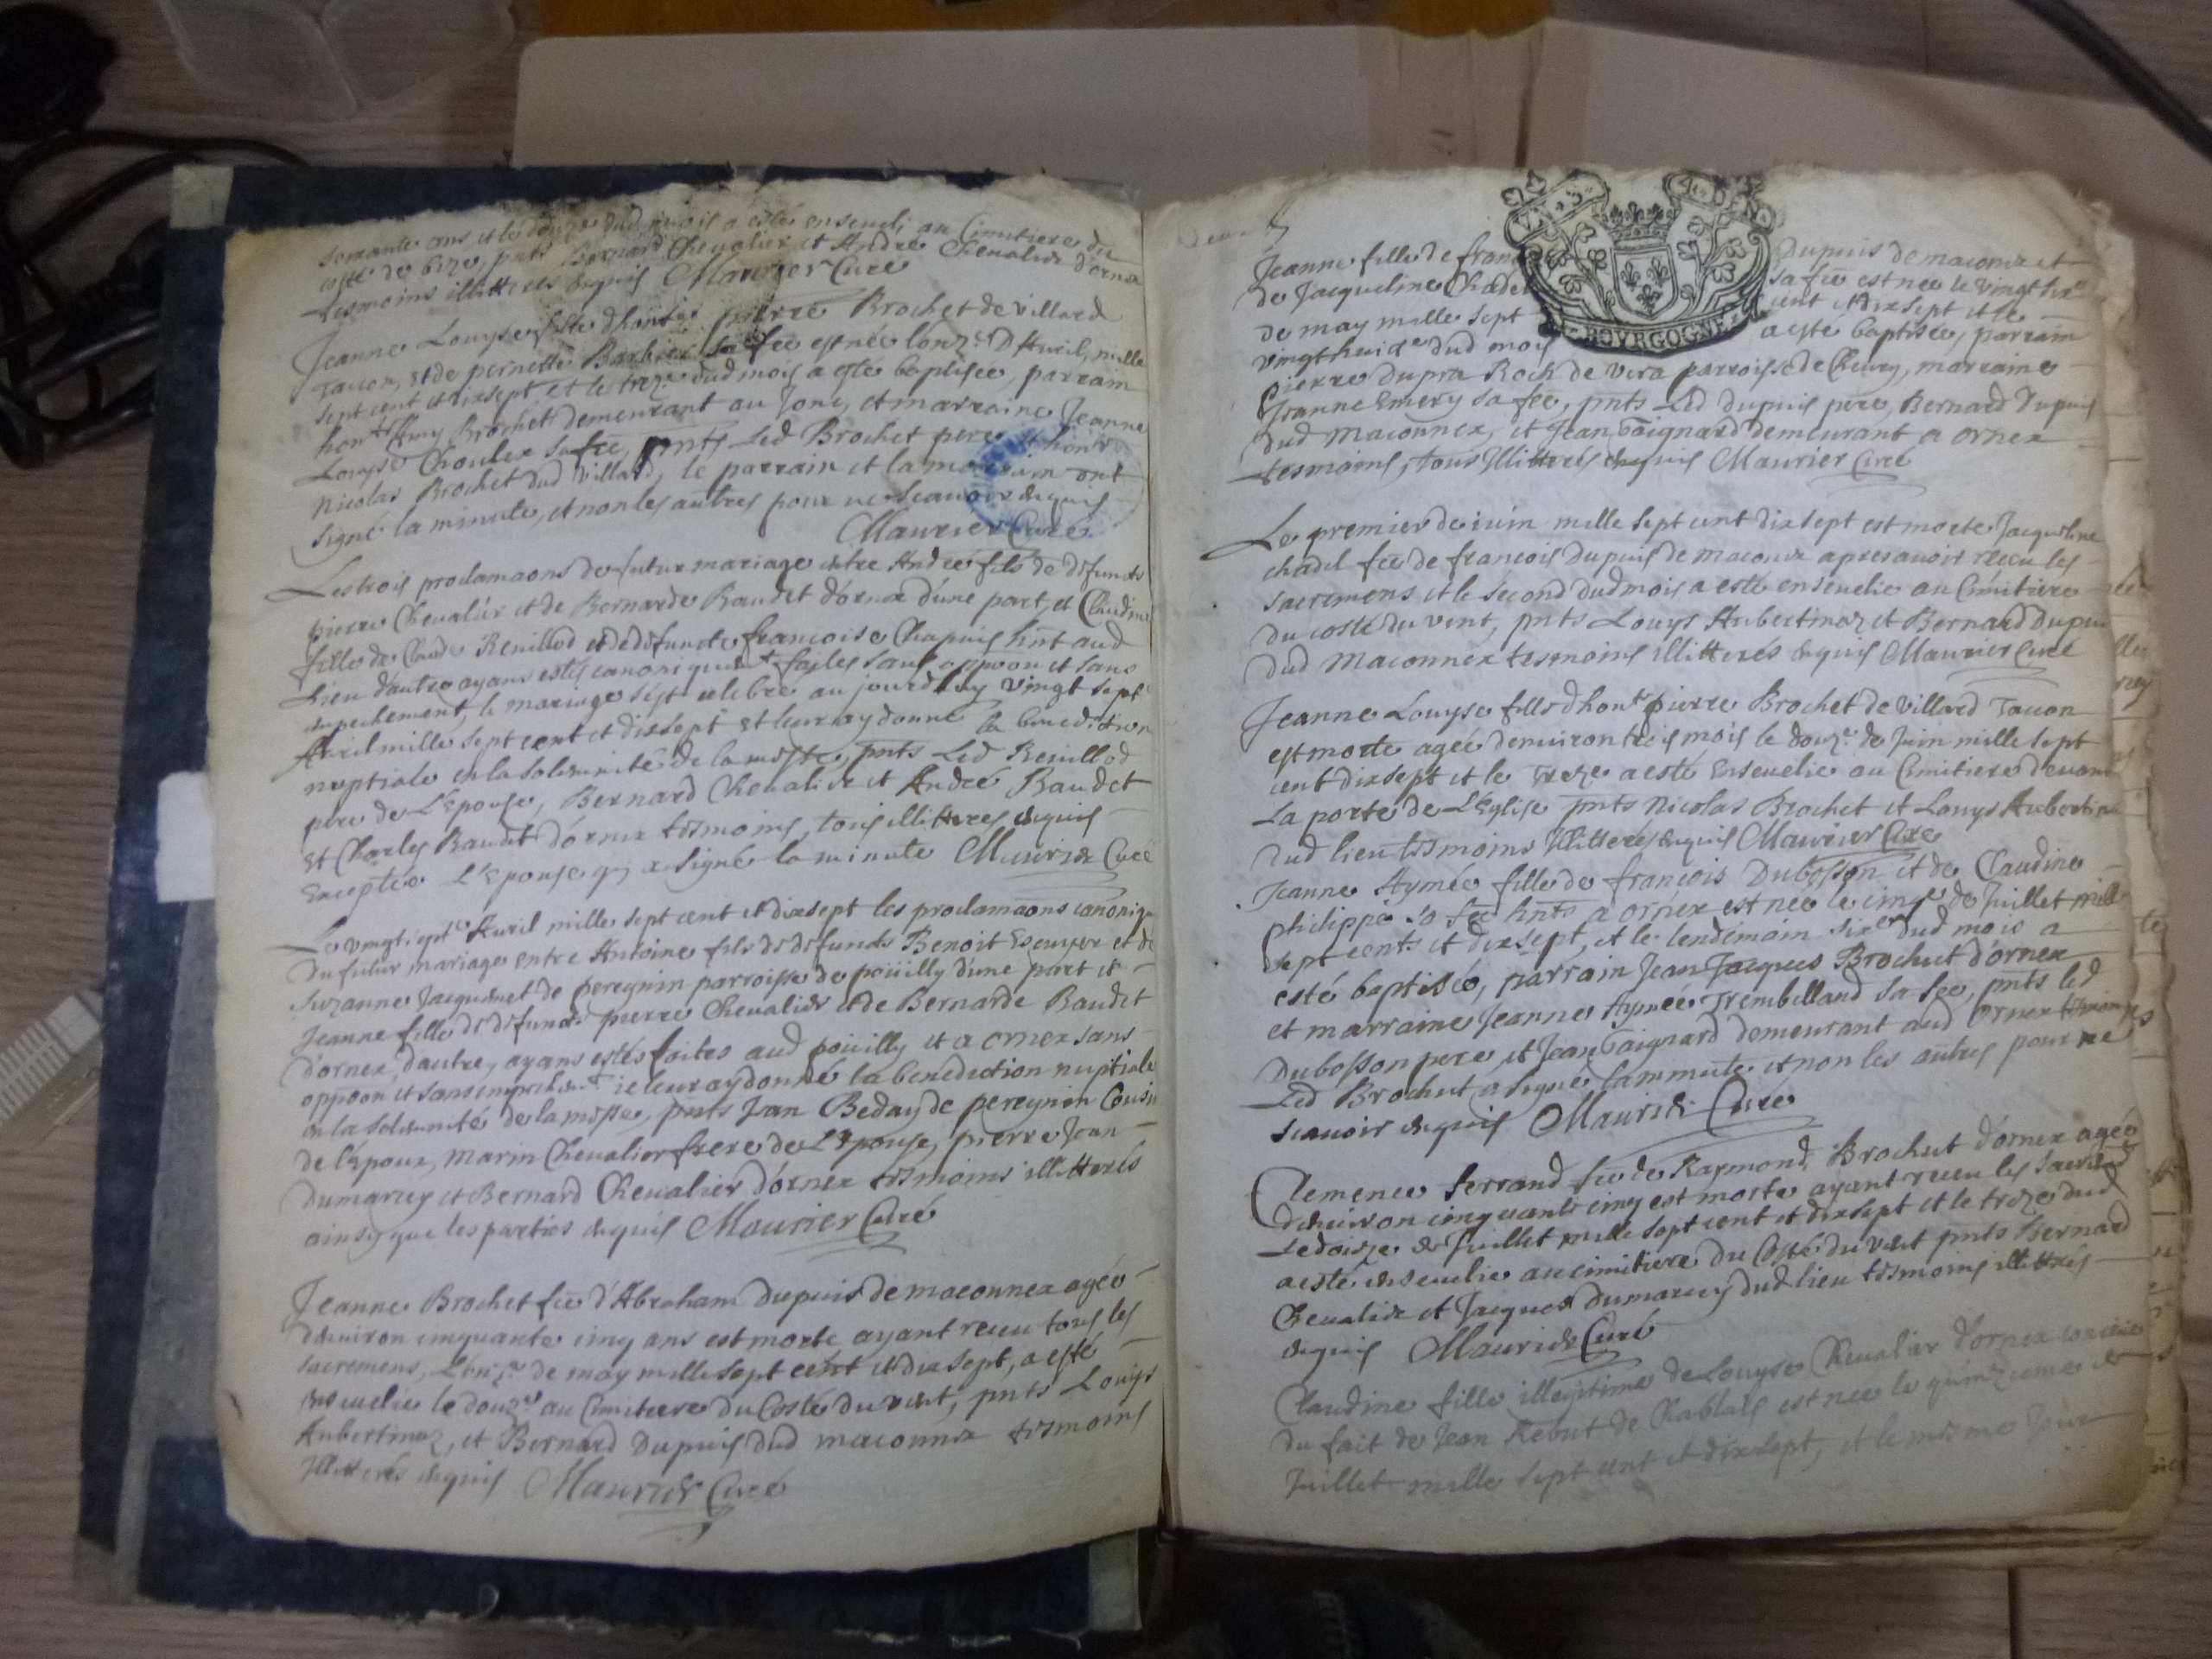 soixante ans, et le douze dud mois a esté enseueli au Cimitiere du
costé de bize pnts Bernard Cheualier et André Cheualier d'ornex
tesmoins illitteres dequis Maurier Curé
Jeanne Louyse fille d'honte pierre Brochet de Villard
Tacon, et de pernette Barbier sa fee est née l'onze D'Auril, mille
sept cent et dixsept et le treze dud mois a esté baptisée, parrain
honte Brochet demeurant au Jonc, et marraine Jeanne
Louyse Choulex sa fee, pnts Led Brochet pere, et honte
Nicolas Brochet dud Villard, le parrain et la marraine ont
signé la minute, et non les autres pour ne scauoir dequis
Maurier Curé
Les trois proclamaons de futur mariage entre André fils de defuncts
pierre Cheualier et de Bernarde Baudet d'ornex d'une part, et Claudine
fille de Claude Reuillod et de defuncte francoise Chapuis hnt aud
Lieu d'autre ayans estés canoniquemt faites sans oppoon et sans
empechement, le mariage s'est celebré au jourd'huy vingt sept
Auril mille sept cent et dixsept et leur ay donné la benediction
nuptiale en la solemnité de la messe, pnts Led Reuillod
pere de L'Epouse, Bernard Cheualier et André Baudet
et Charles Baudet d'ornex tesmoins, tous illitteres dequis
Exceptée L'Epouse qui a signé la minute Maurier Curé
Le vingtsepte Auril mille sept cent et dixsept les proclamaons canoniq
du futur mariage entre Antoine fils de defuncts Benoit Escuyer et de
Suzanne Jacquemet de peregnin parroisse de poüilly d'une part et
Jeanne fille de defuncts pierre Cheualier et de Bernarde Baudet
d'ornex d'autre, ayans estés faites aud poüilly et a ornex sans
oppoon et sans empechemt ie leur ay donné la benediction nuptiale
en la solemnité de la messe, pnts Jean Beday de peregnin Cousin
de l'Epoux, Marin Cheualier frere de L'Epouse, pierre Jean
Dumarcey et Bernard Cheualier d'ornex tesmoins illitterés
ainsy que les parties dequis Maurier Curé
Jeanne Brochet fee d'Abraham Dupuis de maconnex agée
d'enuiron cinquante cinq ans est morte ayant receu tous les
sacremens, L'onze de may mille sept cent et dix sept, a esté
enseuelie le douze au Cimitiere du Costé du vent, pnts Louys
Aubertinaz, et Bernard Dupuis dud maconnex tesmoins
Illitterés dequis Maurier Curé
BOVRGOGNE
Jeanne fille de franc Dupuis de maconnex et
de Jacqueline Chadel sa fee est née le vingt
de may mille sept cent et dixsept et le
vingthuite dud mois a esté baptisée, parrain
pierre Dupra Roch de vera parroisse de Cheury, marraine
Jeanne Emery sa fee, pnts Led Dupuis pere, Bernard Dupuis
dud Maconnex, et Jean Goignard demeurant a ornex
tesmoins, tous Illitterés dequis Maurier Curé
Le premier de iuin mille sept cent dix sept est morte Jacqueline
chadel fee de francois Dupuis de maconnex apres auoir receu les
sacremens et le second dud mois a esté enseuelie au Cimitiere
du costé du vent, pnts Louys Aubertinaz et Bernard Dupuis
dud Maconnex tesmoins illitterés dequis Maurier Curé
Jeanne Louyse fille d'honte pierre Brochet de Villard Tacon
est morte agée d'enuiron trois mois le douze de Juin mille sept
cent dixsept et le Treze a esté Enseuelie au Cimitiere deuant
La porte de L'Eglise pnts Nicolas Brochet et Louys Aubertinaz
Dud lieu tesmoins Illitterés dequis Maurier Curé
Jeanne Aymée fille de françois Dubosson et de Claudine
philippe sa fee hnts a ornex est née le cinqe de Juillet mille
sept cents et dixsept, et le lendemain sixe dud mois a
esté baptisée, parrain Jean Jacques Brochut d'ornex
et marraine Jeanne Aymée Trembilland sa fee, pnts led
Dubosson pere et Jean Goignard demeurant aud ornex tesmoins
Led Brochut a signé la minute et non les autres pour ne
scauoir dequis Maurier Curé
Clemence ferrand fee de Raymond Brochut d'ornex agée
d'enuiron cinquante cinq est morte ayant receu les sacremts
Le doize de Juillet mille sept cent et dixsept et le treze dud
a esté enseuelie au cimitiere du Costé du vent pnts Bernard
Cheualier et Jacques Dumarcey dud lieu tesmoins illitterés
dequis Maurier Curé
Claudine fille illegitime de Louyse Cheualier d'ornex
du fait de Jean Rebut de Chablais est née le quinzieme de
Juillet mille sept cent et dixsept, et le mesme Jour